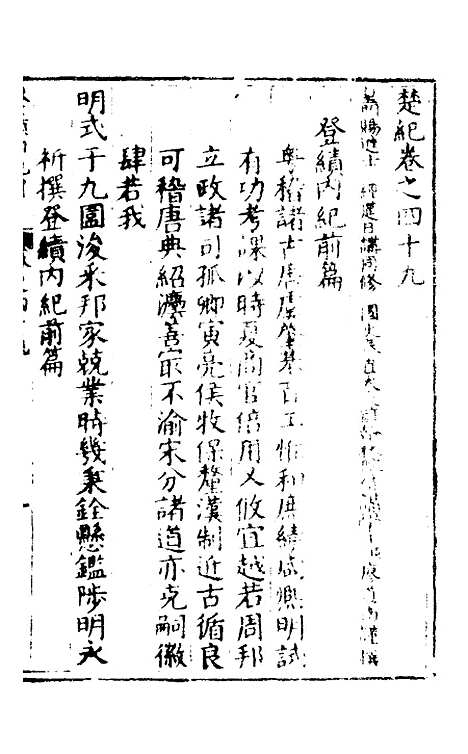 楚紀卷之四十九
賜進士 經筵日講同修 國史
登績內紀前篇
粵稽諸古唐虞肇基百工惟和庶績咸熙明試
有功考課以時夏商官倍用乂攸宜越若周邦
立政諸司孤卿寅亮侯牧保釐漢制近古循良
可稽唐典紹灋善最不渝宋分諸道亦克嗣徽
肆若我
明式于九圍浚釆邦家兢業時幾秉銓懸鑑陟明永
祈撰登績內紀前篇